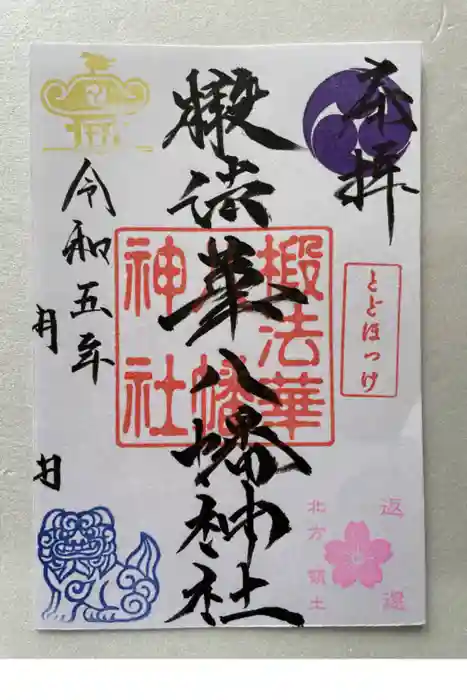 奉拝
とどほっけ
返還
北方領土
椴法華八幡神社
椴法華八幡神社
令和五年
月
日